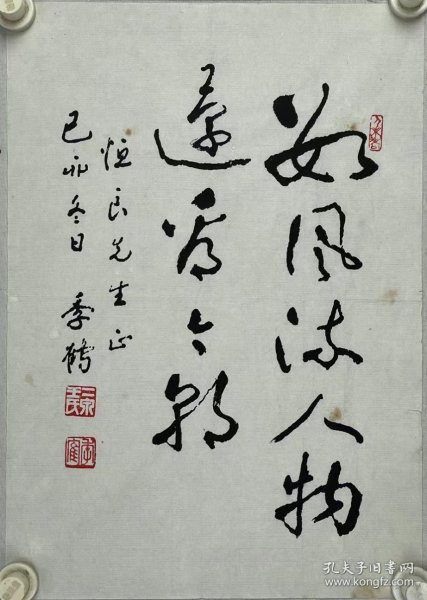 数风流人物
还看今朝
恒良先生正
己卯冬日 季鹤
孔夫子旧书网
www.kongfz.com